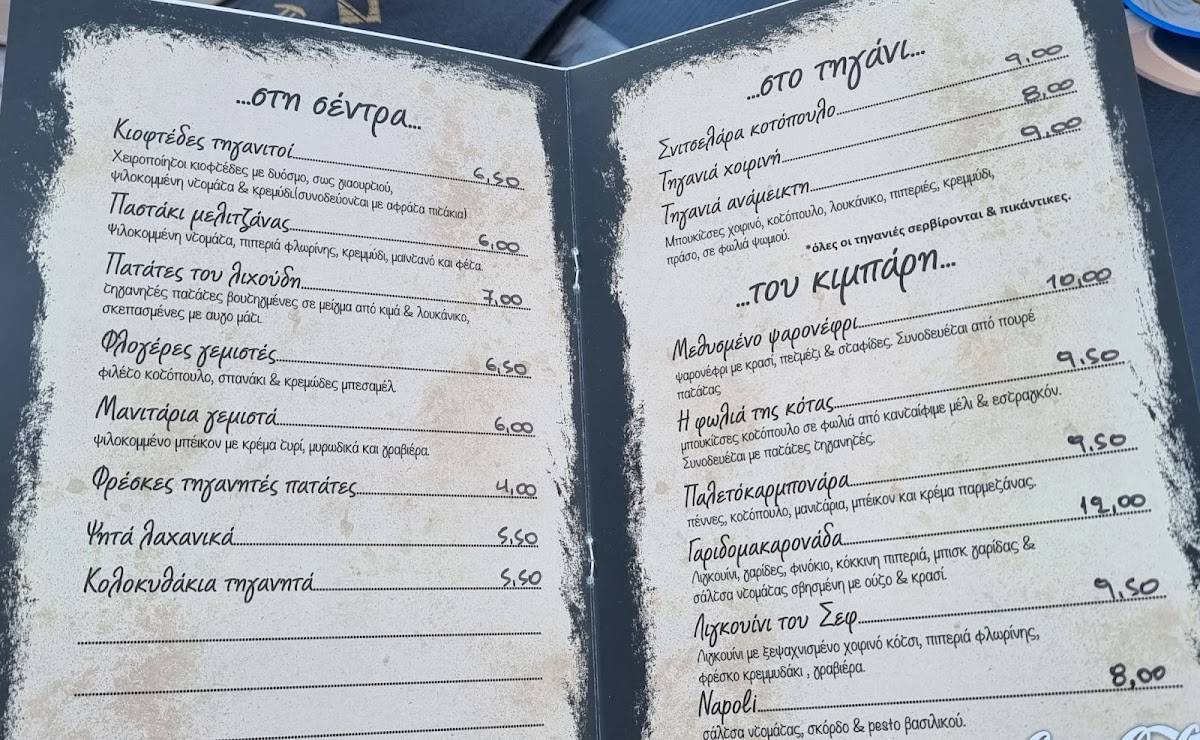 ...στη σέντρα...
Κιοφτέδες τηγανιτοί 6,50
Χειροποίητοι κιοφτέδες με δυόσμο, σως γιαουρτιού,
ψιλοκομμένη ντομάτα & κρεμύδι.(συνοδεύονται με αφράτα πιτάκια)
Παστάκι μελιτζάνας 6,00
Ψιλοκομμένη ντομάτα, πιπεριά φλωρίνης, κρεμμύδι, μαϊντανό και φέτα.
Πατάτες του λιχούδη 7,00
τηγανητές πατάτες βουτηγμένες σε μείγμα από κιμά & λουκάνικο,
σκεπασμένες με αυγο μάτι.
Φλογέρες γεμιστές 6,50
φιλέτο κοτόπουλο, σπανάκι & κρεμώδες μπεσαμέλ
Μανιτάρια γεμιστά 6,00
ψιλοκομμένο μπέικον με κρέμα τυρί, μυρωδικά και γραβιέρα.
Φρέσκες τηγανητές πατάτες 4,00
Ψητά λαχανικά 5,50
Κολοκυθάκια τηγανητά 5,50
...στο τηγάνι...
Σνιτσελάρα κοτόπουλο 9,00
Τηγανιά χοιρινή 8,00
Τηγανιά ανάμεικτη 9,00
Μπουκίτσες χοιρινό, κοτόπουλο, λουκάνικο, πιπεριές, κρεμμύδι,
πράσο, σε φωλιά ψωμιού.
*όλες οι τηγανιές σερβίρονται & πικάντικες.
...του κιμπάρη...
Μεθυσμένο ψαρονέφρι 10,00
ψαρονέφρι με κρασί, πετμέζι & σταφίδες. Συνοδευέται από πουρέ
πατάτας
Η φωλιά της κότας 9,50
μπουκίτσες κοτόπουλο σε φωλιά από κανταίφιμε μέλι & εστραγκόν.
Συνοδευέται με πατάτες τηγανητές.
Παλετόκαρμπονάρα 9,50
πέννες, κοτόπουλο, μανιτάρια, μπέικον και κρέμα παρμεζάνας.
Γαριδομακαρονάδα 12,00
Λιγκουίνι, γαρίδες, φινόκιο, κόκκινη πιπεριά, μπισκ γαρίδας &
σάλτσα ντομάτας σβησμένη με ούζο & κρασί.
Λιγκουίνι του Σεφ 9,50
Λιγκουίνι με ξεψαχνισμένο χοιρινό κότσι, πιπεριά φλωρίνης,
φρέσκο κρεμμυδάκι , γραβιέρα.
Napoli 8,00
σάλτσα ντομάτας, σκόρδο & pesto βασιλικού.